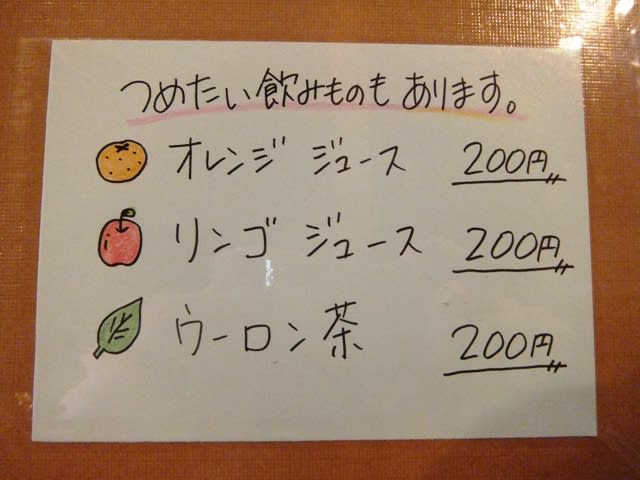 つめたい飲みものもあります。
オレンジ ジュース 200円
リンゴ ジュース 200円
ウーロン茶 200円